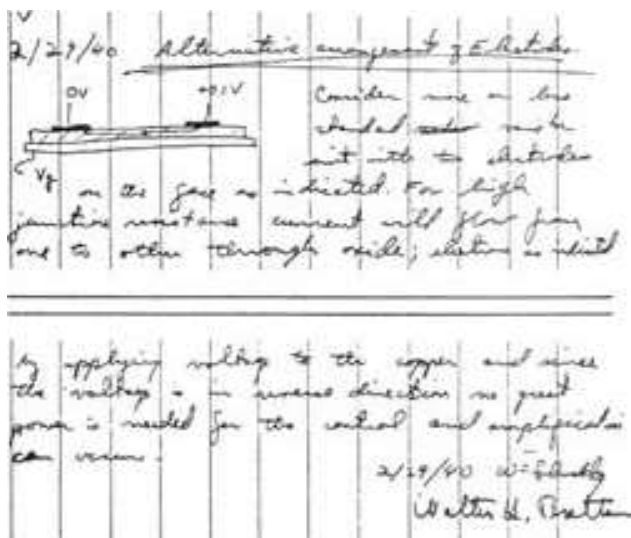 2/29/40 Alternative arrangement of Electrodes
0V +0.1V
Consider more or less
standard
unit with two electrodes
Vg
on the face as indicated. For high
junction resistance current will flow from
one to other through oxide; electrons as
by applying voltage to the copper and since
the voltage is in reverse direction no great
power is needed for the control and amplification
can
2/29/40 W Shockley
Walter H. Brattain